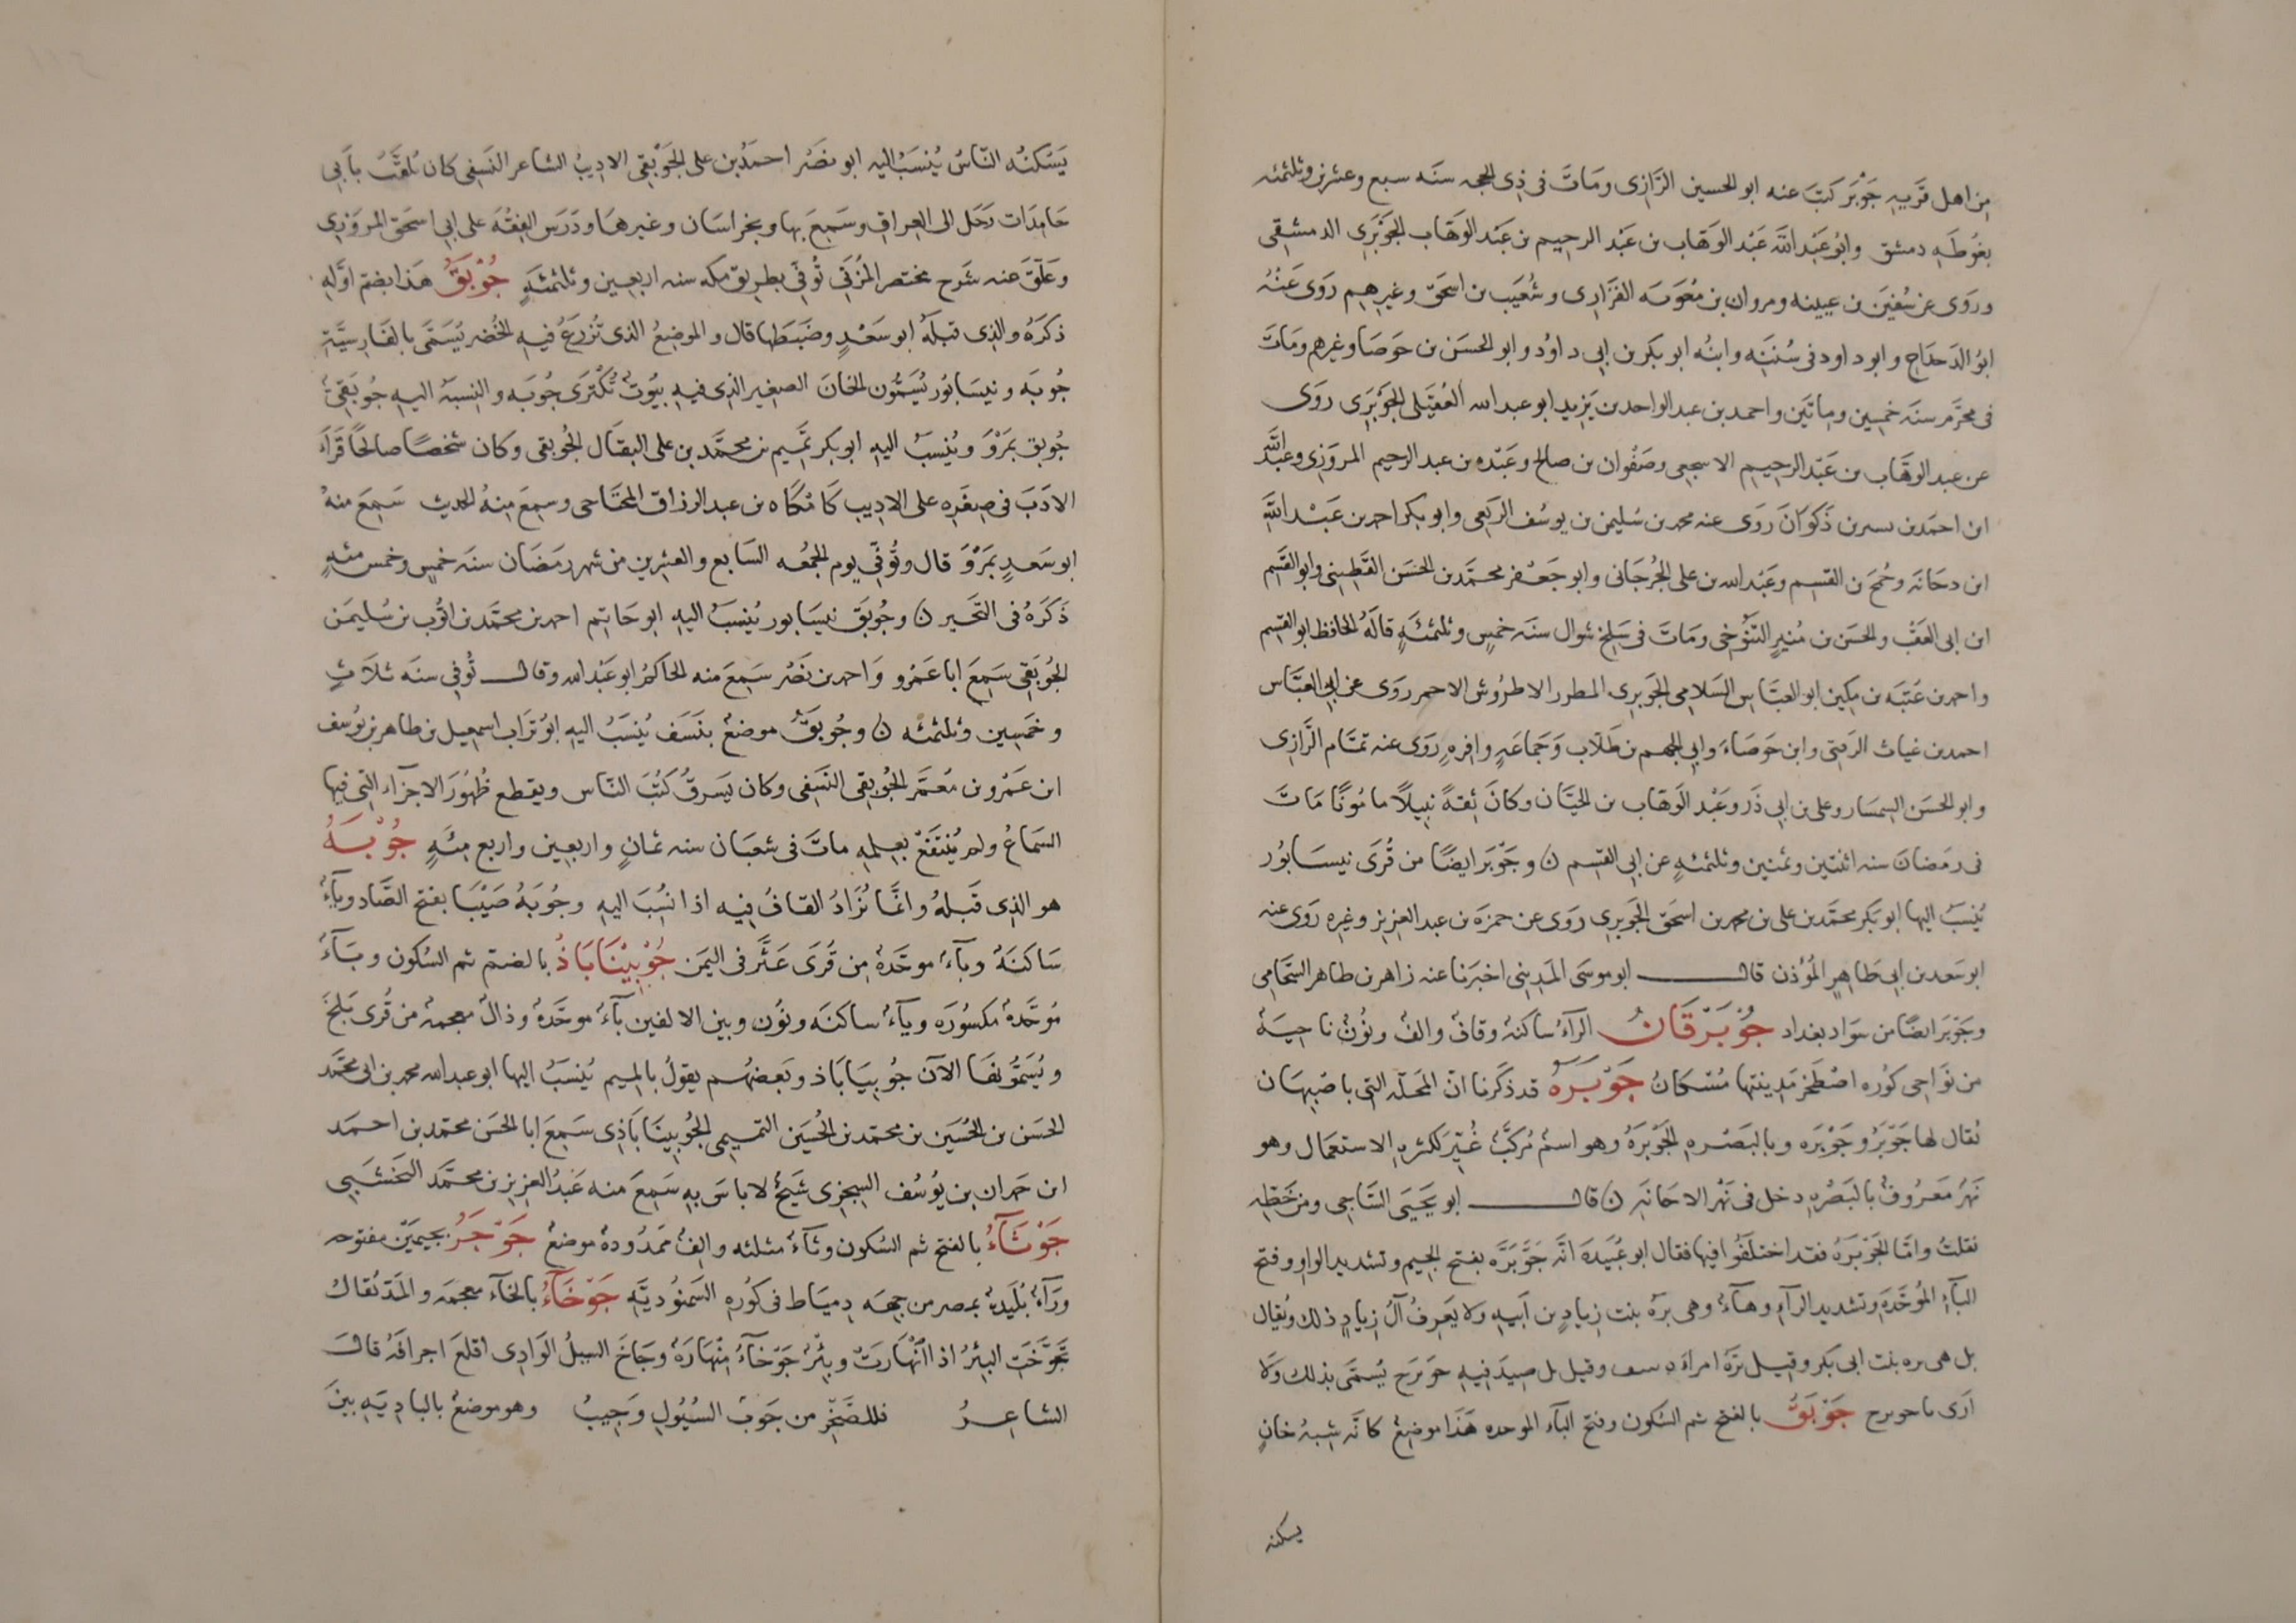 من اهل قريه جَوْبَر كتبَ عنه ابو الحسين الرّازى وماتَ فى ذِى الحجه سنَه سبع وعشرين وثلثمئه
بغُوطَهِ دمشق وابُو عَبْد اللّه عَبْد الوَهّاب بن عَبْد الرحيم بن عَبْد الوَهّاب الجَوْبَرِى الدمشقى
وروَى عن سُفيَن بن عيينه ومروان بن مُعوَيه الفَزَارى وشُعَيب بن اسحق وغيرهم روَى عَنْهُ
ابوُ الدَحدَاح وابو داود فى سُننَه وابنُه ابو بكر بن ابى داوُد وابو الحسَن بن حَوصَا وغيرهم ومَاتَ
فى محرَّم سنَه خمسين وماتَين واحمد بن عبد الواحد بن يَزيد ابو عبد الله العُقَيلى الجَوبَرَى روَى
عن عبد الوهَّاب بن عَبْد الرحيم الاسجعى وصَفْوان بن صالح وعَبْده بن عبد الرحيم المروَزى وعبد اللّه
ابن احمَد بن بسر بن ذَكوَانَ روَى عنه محمد بن سُليمن بن يوسُف الربَعى وابو بكر احمد بن عَبْد اللّه
ابن دحَانَه وجُمَح بن القسِم وعَبْد الله بن على الجُرجَانى وابو جَعْفر محمّد بن الحسَن القَطِينى وابو القَسِم
ابن ابى العَقَب والحسَن بن مُنيرٍ التَنُوخى ومَاتَ فى سَلخ شوال سنَه خمسٍ وثلثمئَهٍ قالَهُ الحافظ ابو القسِم
واحمد بن عَتبَه بن مكين ابو العَبَّاس السَلامى الجَوبرِى المطرر الاطرُوش الاحمر روَى عن ابى العبَّاس
احمد بن غياث الرَمتى وابن حَوصَاءَ وابى الجهم بن طَلّاب وَجمَاعَهٍ وافرهٍ روَى عنه تمّام الرَّازِى
وابو الحسَن السِمسَار وعلى بن ابى ذَر وعَبْد الوَهّاب بن الجبّان وكانَ ثِقةً نبِيلاً مامُونًا مَاتَ
فى رمضانَ سنه اثنتين وثمنين وثلثمئهٍ عن ابى القسِم ن وجَوْبَر ايضًا من قُرَى نيسَابُور
يُنسَبُ اليها ابو بَكر محمَّد بن على بن محمد بن اسحَق الجَوبرِى روَى عن حمزَه بن عبد العزيز وغيره روَى عنه
ابو سَعد بن ابى طَاهرٍ المؤذن قال ابو موسَى المَدينى اخبرَنا عنه زاهر بن طاهر الشحّامى
وجَوْبَر ايضًا من سوَاد بغداد جُوْبَرْقَانُ الرّآءُ ساكنهٌ وقافٌ والفٌ ونُونٌ ناحيَهٌ
من نوَاحى كوُره اصْطَخر مَدينتها مُشكانُ جَوْبَرَهُ قد ذَكَرنا انّ المَحَلّه التى باصْبهَان
يُقال لها جَوْبَرُ وجَوْبَره وبالبَصْرهِ الجَوْبَرَهُ وهو اسمٌ مُركبٌّ غُيِّرَ لكثرهِ الاستعمال وهو
نَهْرٌ مَعرُوفٌ بالبَصْرهِ دخل فى نَهْر الاجانَهِ ن قال ابو يَحيَى السَّاجى ومن خَطّهِ
نقلتُ وامّا الجَوْبَرَهُ فقد اختلَفُوا فيها فقال ابو عُبَيدهَ انَّه جَوَّبَرَّه بفتح الجيم وتشديد الواو وفتح
البآءِ المُوَحَّدَهِ وتشديد الرآءِ وهآءٌ وهى برَهُ بنت زيادِ بن ابيهِ ولا يَعرِفُ آلُ زيادٍ ذلك ويُقالُ
بل هى بره بنت ابى بَكر وقيل برَّه امراه وقيل بل صيدَ فيهِ يُسمّى بذلك وَلا
ارَى ما جَوْبَقُ بالفتح ثم السُكون وفتح البآء الموحده هَذَا موضعٌ كانّه شِبهُ خانٍ
يسكنه
يَسَكنُه النّاسُ يُنسَبُ اليه ابو نصْر احمَدُ بن على الجَوْبَقى الادِيبُ الشاعر النسَفى كان يُلقَّبُ بابى
حَامِدَات رَحَل الى العراق وسَمِعَ بها وبخراسَان وغيرهَا ودَرَس الفِقْهَ على ابى اسحَق المروَزى
وعَلّقَ عنه شَرح مختصر المُزَنى تُوفِّى بطريق مكه سنه اربعين وثلثمئَهٍ جُوْبَقُ هَذا بضمّ اوَّلهِ
ذكَرهُ والذى قبلَهُ ابو سَعْدٍ وضَبَطَها قال والموضعُ الذى تُزرَعُ فيهِ الخُضر يُسَمَّى بالفَارسيَّهِ
جُوبَه ونيسَابُور يُسَمُّون الخانَ الصغير الذى فيهِ بيُوتٌ تُكْترَى جُوبَه والنِسبَهُ اليهِ جُوبَقىٌّ
جُوبق بمَرْوَ ويُنسَبُ اليهِ ابو بكر تمَيم بن محمَّد بن على البقال الجُوبقى وكان شخصًا صالحًا قَرَأ
الادَبَ فى صِغَرِه على الادِيبِ كَامْكاه بن عبد الرزاق المحتاجى وسمِعَ مِنهُ الحديث سَمِعَ منهُ
ابو سَعدٍ بمَرْوَ قال وتُوُفِّى يوم الجمعُه السَابع والعشرين من شهر رمَضَان سنَه خمسٍ وخمس مئهٍ
ذَكَرَهُ فى التَحبير ن وجُوبَق نيسَابور يُنسَبُ اليهِ ابو حَاتِم احمد بن محمَّد بن ايُّوب بن سُليمَن
الجُوبَقى سَمِعَ ابا عَمْرو وَاحمد بن نصْر سَمِعَ منه الحاكمُ ابو عَبْد الله وقال تُوفى سنَه ثلَاثٍ
وخمَسِين وثلثمئه ن وجُوبَقُ موضعٌ بنسَف يُنسَبُ اليهِ ابوُ تُرَاب اسمعيل بن طاهر بن يوُسف
ابن عَمْرو بن مَعمَّر الجُوبقى النَسفى وكان يَسرقُ كُتبَ النّاس ويقطع ظُهوُرَ الاجزآء التى فيها
السَماعُ ولم يُنتفَعْ بعِلمِهِ ماتَ فى شعبَان سنه ثمانٍ واربعين واربع مِئهٍ جُوْبَهُ
هو الذى قَبلهُ وانَّما تُزَادُ القافُ فيه اذا نُسِبَ اليهِ وجُوبَهُ صَيْبَا بفتح الصَّاد ويآءٌ
سَاكنَهٌ وبآءٌ موحَّدهٌ مِن قُرَى عَثَّر فى اليمَن جُوْبِيْنَابَاذُ بالضمّ ثم السُكون وبَآءٌ
مُوَحَّدهٌ مكسوُرَه ويآءٌ ساكنَه ونُون وبين الالفين بآءٌ موحَّدهٌ وذالٌ معجمهٌ من قُرى بَلخَ
ويُسَمُّونها الآن جُوبيَابَاذ وبَعضهُم يقولُ بالميم يُنسَبُ اليها ابو عبد الله محمد بن ابى محمَّد
الحسَن بن الحُسَين بن محمّد بن الحُسَين التميمى الجُوبينَابَاذِى سَمِعَ ابا الحسَن محمّد بن احمَد
ابن حَمدان بن يوُسُف السِجزى شَيخٌ لا باسَ بهِ سَمِعَ منه عَبْدُ العزيز بن محمَّد النخشَبى
جَوْثَآءُ بالفتح ثم السُكون وثآءٌ مثلثه والفٌ ممَدُودهٌ موضعٌ جَوْجَرُ بجيمَيْن مفتوحه
ورآءٌ بُلَيدهٌ بمصر من جِهَه دِميَاط فى كوُرهِ السَمنوُديَّهِ جَوْخَآءُ بالخآء معجمَه والمَدّ يُقالُ
تَجَوَّخَتِ البئرُ اذا انْهَارَتْ وبِئرٌ جَوْخآءُ مِنْهَارَهٌ وجَاخَ السَيلُ الوَادِى اقلعَ اجرافَهُ قالَ
الشاعِرُ فللصَّخْرِ من جَوخِ السُيُولِ وَجِيبُ وهو موضعٌ بالبادِيَهِ بينَ